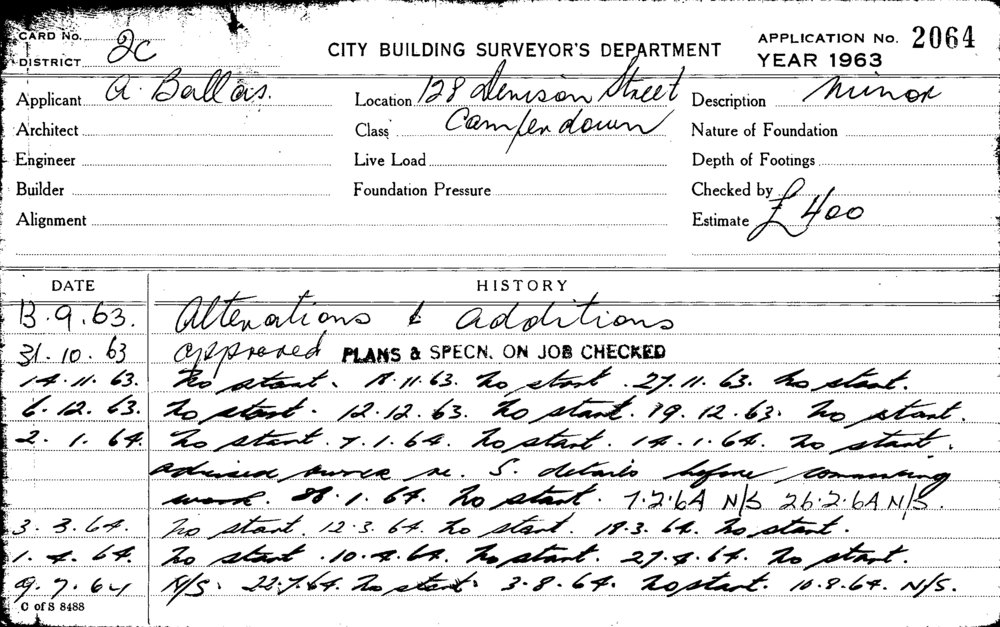 CARD No.
DISTRICT 2C
CITY BUILDING SURVEYOR'S DEPARTMENT
APPLICATION No. 2064
YEAR 1963
Applicant A. Ballas.
Location 128 Denison Street
Description Minor
Architect
Class Camperdown
Nature of Foundation
Engineer
Live Load
Depth of Footings
Builder
Foundation Pressure
Checked by
Alignment
Estimate £400
DATE HISTORY
13.9.63. Alterations & additions
31.10.63 approved PLANS & SPECN. ON JOB CHECKED
14.11.63. No start. 18.11.63. No start. 27.11.63. No start.
6.12.63. No start. 12.12.63. No start. 19.12.63. No start.
2.1.64. No start. 7.1.64. No start. 14.1.64. No start.
advised owner re. S. details before commencing
work. 28.1.64. No start. 7.2.64 N/S 26.2.64 N/S.
3.3.64. No start. 12.3.64. No start. 18.3.64. No start.
1.4.64. No start. 10.4.64. No start. 27.4.64. No start.
9.7.64 N/S. 22.7.64. No start. 3.8.64. No start. 10.8.64. N/S.
C of S 8488